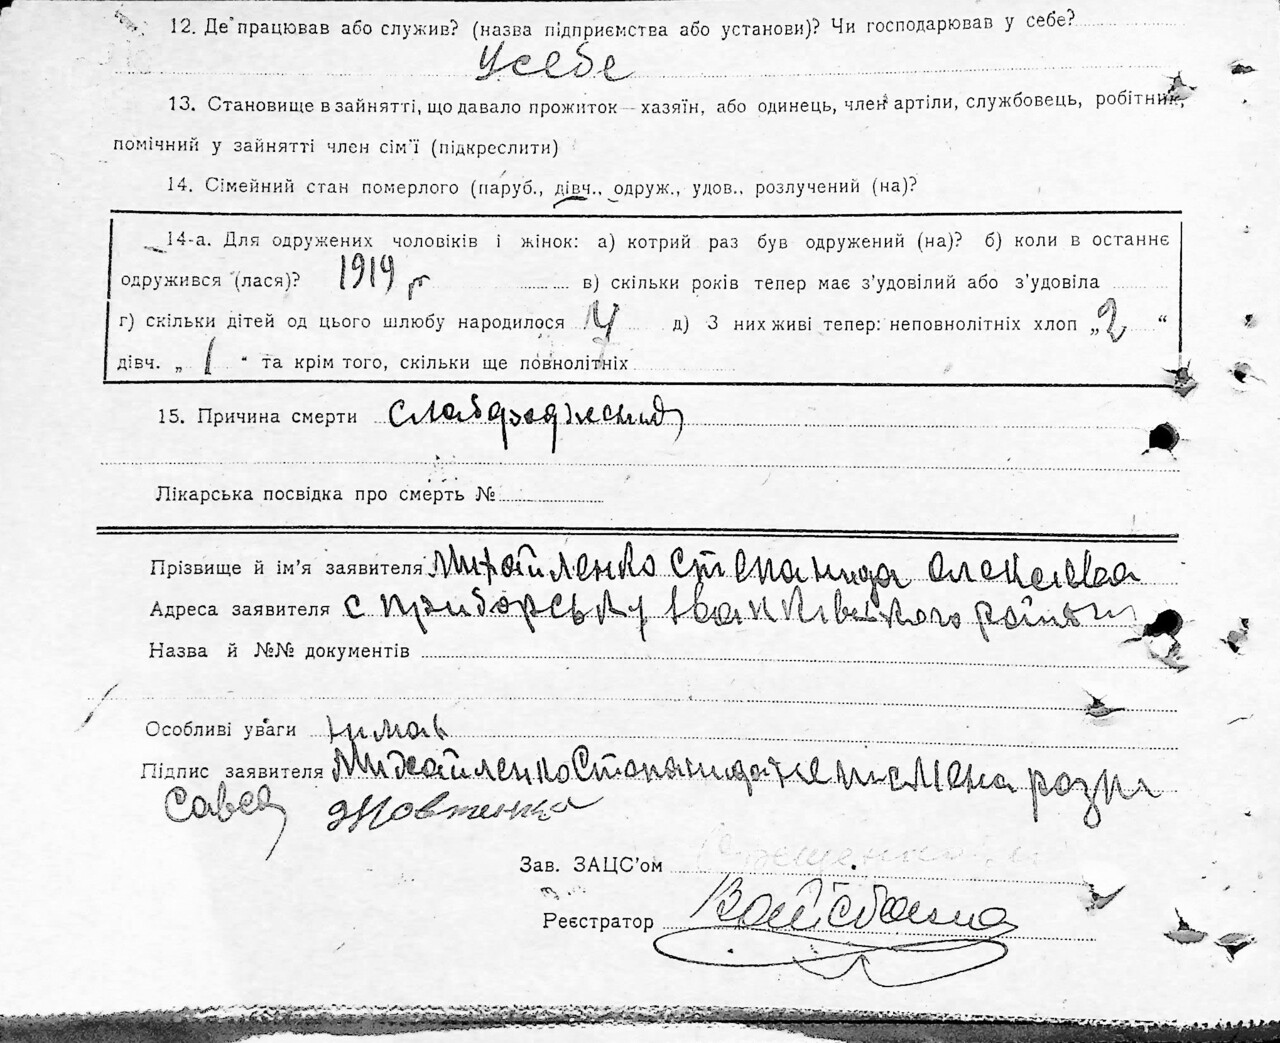 12. Де працював або служив? (назва підприємства або установи)? Чи господарював у себе?
Усебе
13. Становище в зайнятті, що давало прожиток — хазяїн, або одинець, член артіли, службовець, робітник,
помічний у зайнятті член сім'ї (підкреслити)
14. Сімейний стан померлого (паруб., дівч., одруж., удов., розлучений (на)?
14-а. Для одружених чоловіків і жінок: а) котрий раз був одружений (на)? б) коли в останнє
одружився (лася)? 1919 р в) скільки років тепер має з'удовілий або з'удовіла
г) скільки дітей од цього шлюбу народилося 4 д) З них живі тепер: неповнолітніх хлоп „2“
дівч. „1“ та крім того, скільки ще повнолітніх
15. Причина смерти
Лікарська посвідка про смерть №
Прізвище й ім'я заявителя Михайленко Степанида Олексіевна
Адреса заявителя с Приборськ Іванківського району
Назва й №№ документів
Особливі уваги нимає
Підпис заявителя Михайленко Степанида не письмена розпи
Зав. ЗАЦС'ом
Реєстратор